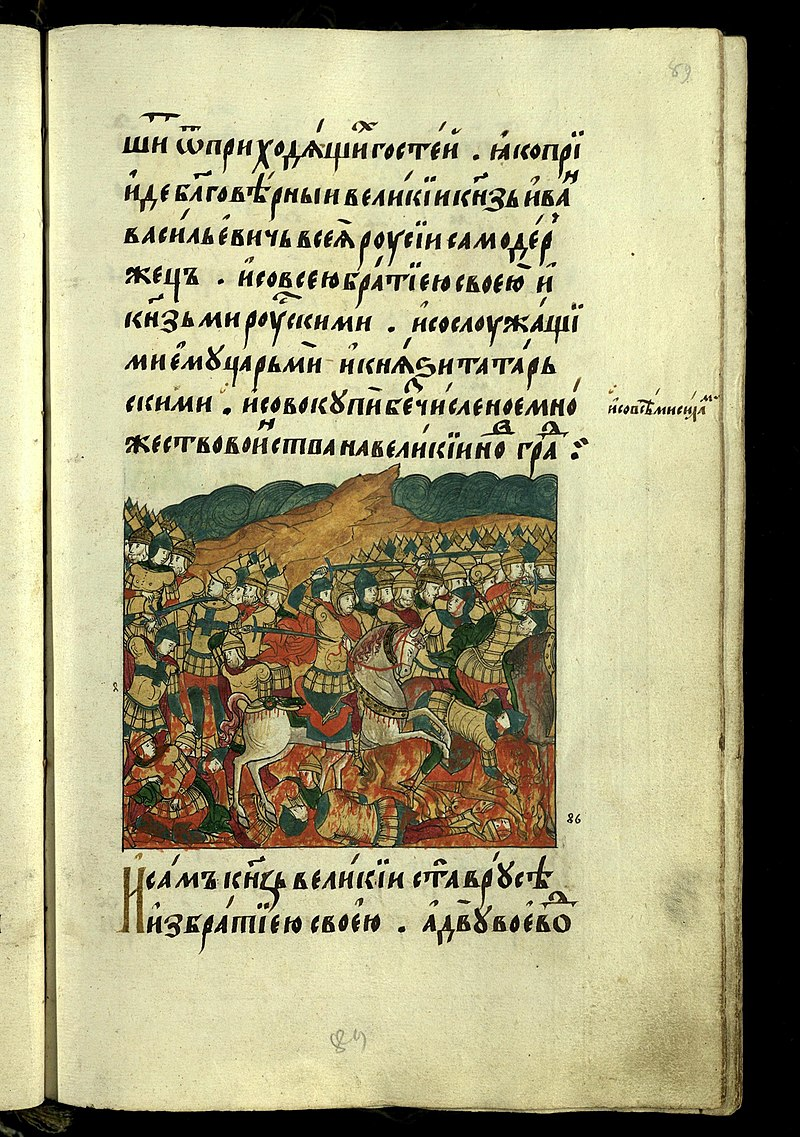 89
шиⷯ ѿприходѧ́щиⷯ гостей . ꙗкопрїи́
и́де бл҃говѣ́рныи великїи кн҃зь ива́ⷩ
васи́льевичь всеѧ̀ роусїи самоде́рⷤ
жець . и́совсею бра́тїею своею̀ и
кн҃зьми роускими . и́со слоужа́щї
ми е́му царьми и кнѧ́ѕи тата́рь
скими . и́совокупи беⷭ҇численое мно́
жество во́иⷩства на великїи ноⷡ гра́ⷣ :
исовсѣ́ми си́лаⷨ
86
И самъ кн҃зь вели́кїи ста̀ в рꙋсѣ̀
и з бра́тїею свое́ю . а двꙋ воево́ⷣ
89